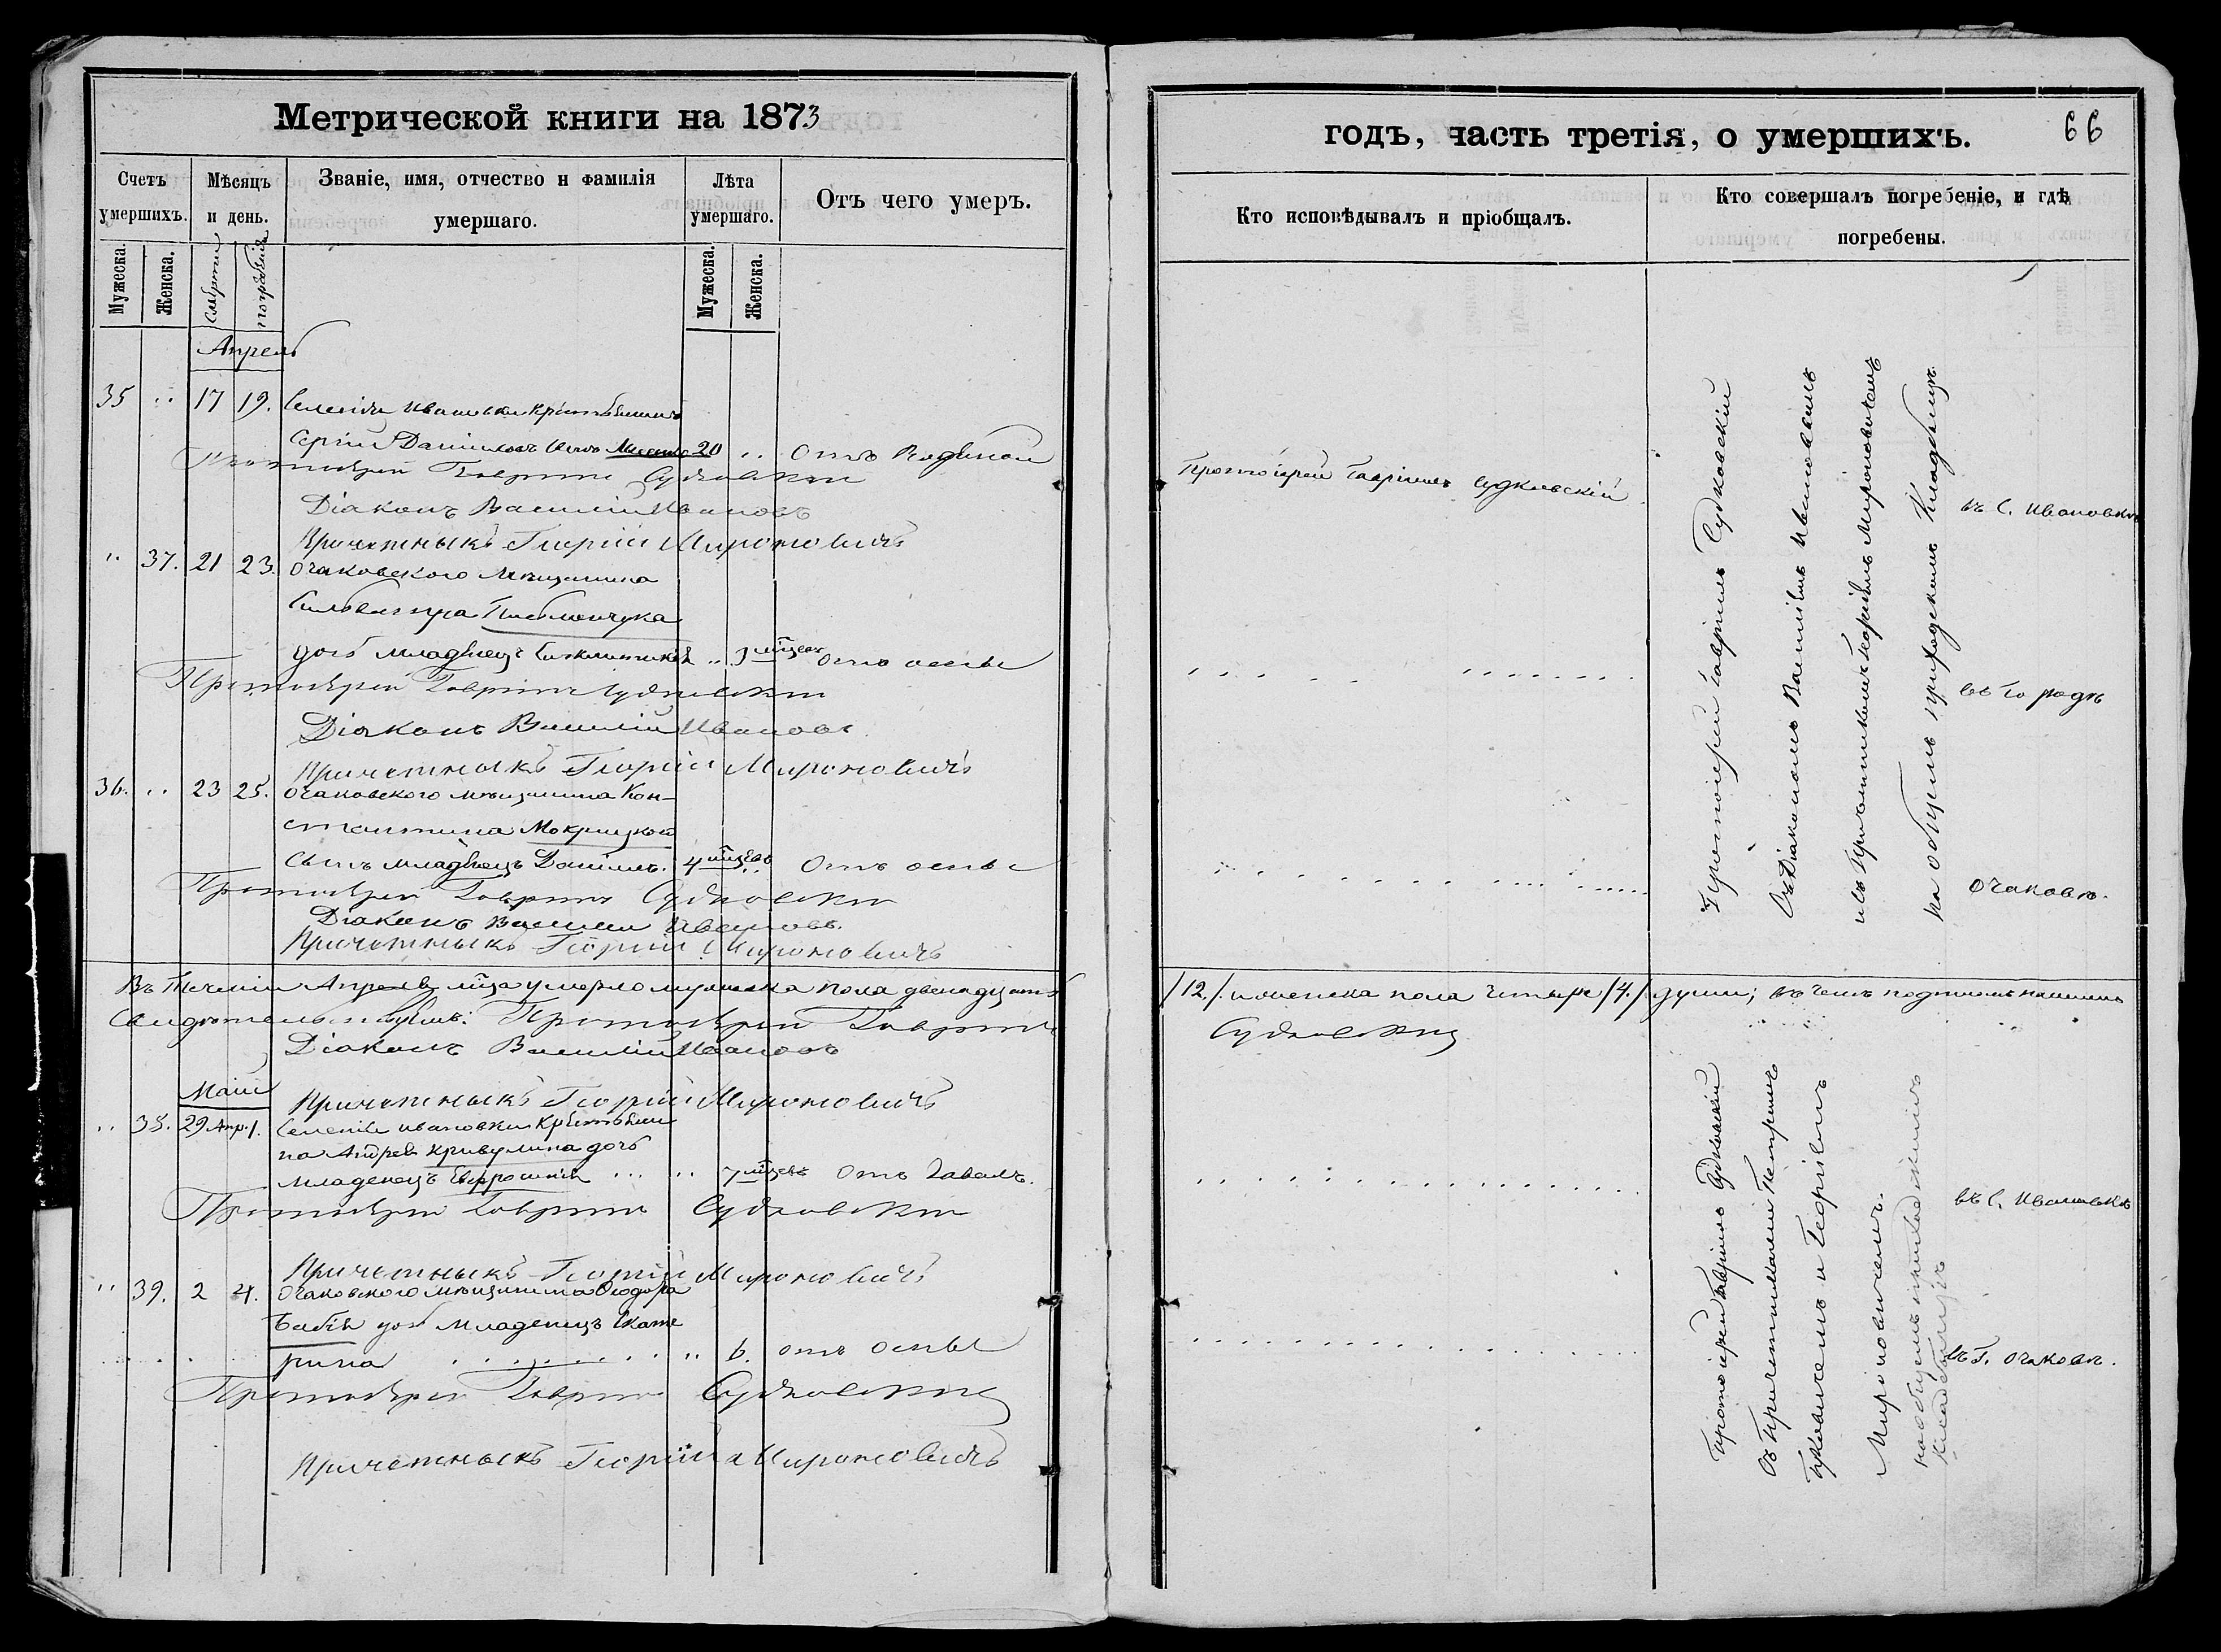 Метрической книги на 1873
Счетъ умершихъ.
Мѣсяцъ и день.
Званіе, имя, отчество и фамилія умершаго.
Лѣта умершаго.
Отъ чего умеръ.
Мужеска.
Женска.
смерти
погребенія
Мужеска.
Женска.
Апрель
35 " 17 19. Селенія Ивановки
Сергій 20 " Отъ
Протоіерей Гавріилъ Судковскій
Діаконъ Василій Ивановъ
Причетныкъ Георгій Мироновичъ
" 37. 21 23. Очаковского мещанина
дочь младенец " Отъ оспы
Протоіерей Гавріилъ Судковскій
Діаконъ Василій Ивановъ
Причетныкъ Георгій Мироновичъ
36. " 23 25. Очаковского мещанина Кон-
стантина Мокрицкого
сынъ младенецъ Даніилъ. 4 мцевъ Отъ оспы
Протоіерей Гавріилъ Судковскій
Діаконъ Василій Ивановъ.
Причетныкъ Георгій Мироновичъ
Въ теченіи Апреля мца умерло мужеска пола двенадцать
Свидетельствуемъ: Протоіерей Гавріилъ
Діаконъ Василій Ивановъ
Причетныкъ Георгій Мироновичъ
Маій
" 38. 29 Апр. 1. Селенія Ивановки Крестьяни
на Андрея Кривулина дочь
младенецъ Евфросинія " 7 мцевъ Отъ
Протоіерей Гавріилъ Судковскій
Причетныкъ Георгій Мироновичъ
" 39. 2 4. Очаковского мещанина Ѳеодора
дочь младенецъ Екате
рина " 6. отъ оспы
Протоіерей Гавріилъ Судковскій
Причетныкъ Георгій Мироновичъ
годъ, часть третія, о умершихъ.
66
Кто исповѣдывалъ и пріобщалъ.
Кто совершалъ погребеніе, и гдѣ погребены.
Протоіерей Гавріилъ Судковскій
Протоіерей Гавріилъ Судковскій
съ Діакономъ Василіемъ Ивановымъ
и Причетникомъ Георгіемъ Мироновичемъ
на общемъ приходскомъ Кладбищѣ.
въ С. Ивановкѣ
въ городѣ
Очаковѣ.
/12./ и женска пола четыре /4./ души; въ чемъ подписомъ нашимъ
Судковскій
Протоіерей Гавріилъ Судковскій
съ Причетниками Петромъ
и Георгіемъ
Мироновичемъ.
на общемъ приходскомъ
Кладбищѣ
въ С. Ивановкѣ
въ Г. Очаковѣ.